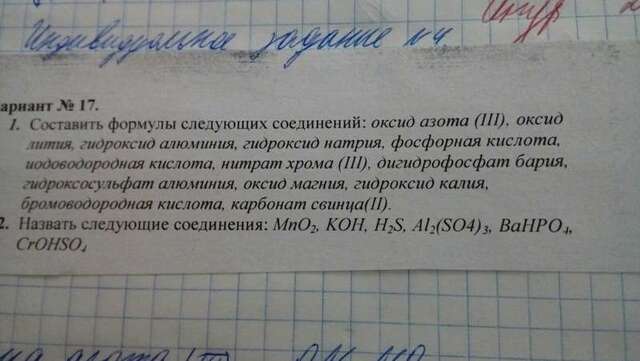 Индивидуальное задание №4
ариант № 17.
1. Составить формулы следующих соединений: оксид азота (III), оксид
лития, гидроксид алюминия, гидроксид натрия, фосфорная кислота,
иодоводородная кислота, нитрат хрома (III), дигидрофосфат бария,
гидроксосульфат алюминия, оксид магния, гидроксид калия,
бромоводородная кислота, карбонат свинца(II).
2. Назвать следующие соединения: MnO2, KOH, H2S, Al2(SO4)3, BaHPO4,
CrOHSO4